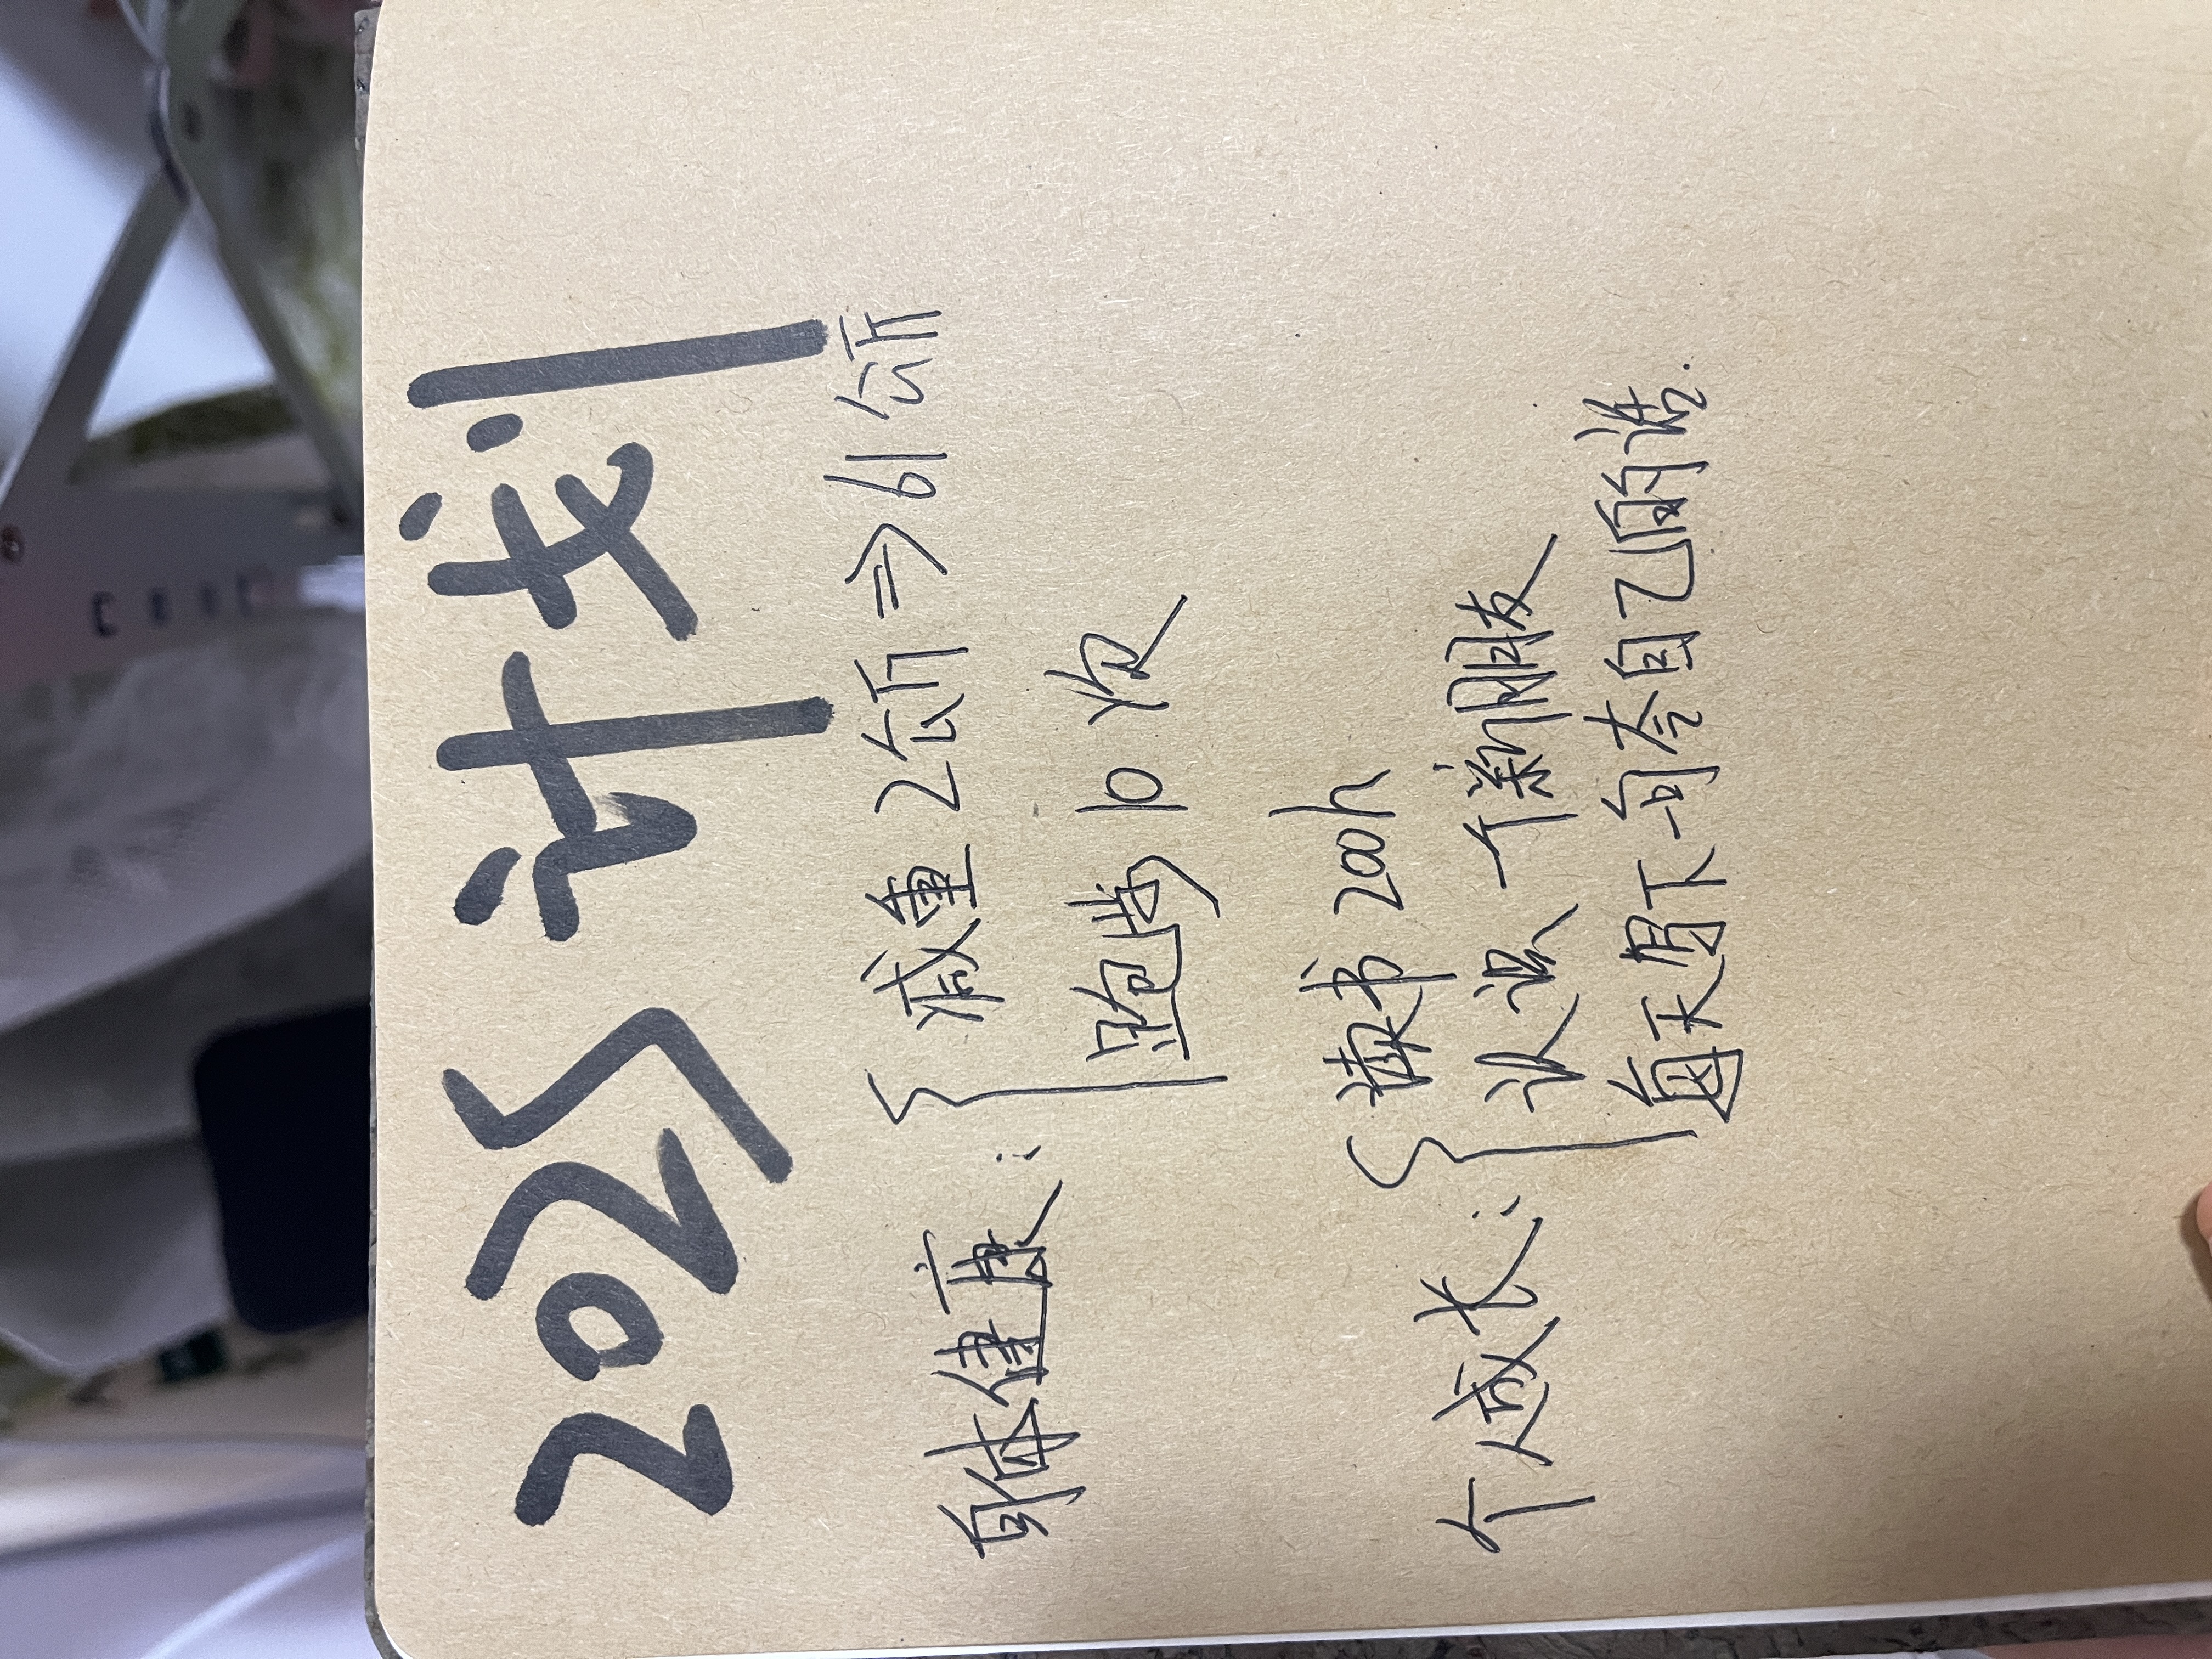 2025 计划
身体健康: { 减重 2公斤 ⇒ 61公斤
跑步 10 次
个人成长: { 读书 200h
认识 一个新朋友
每天留下一句夸自己的话.